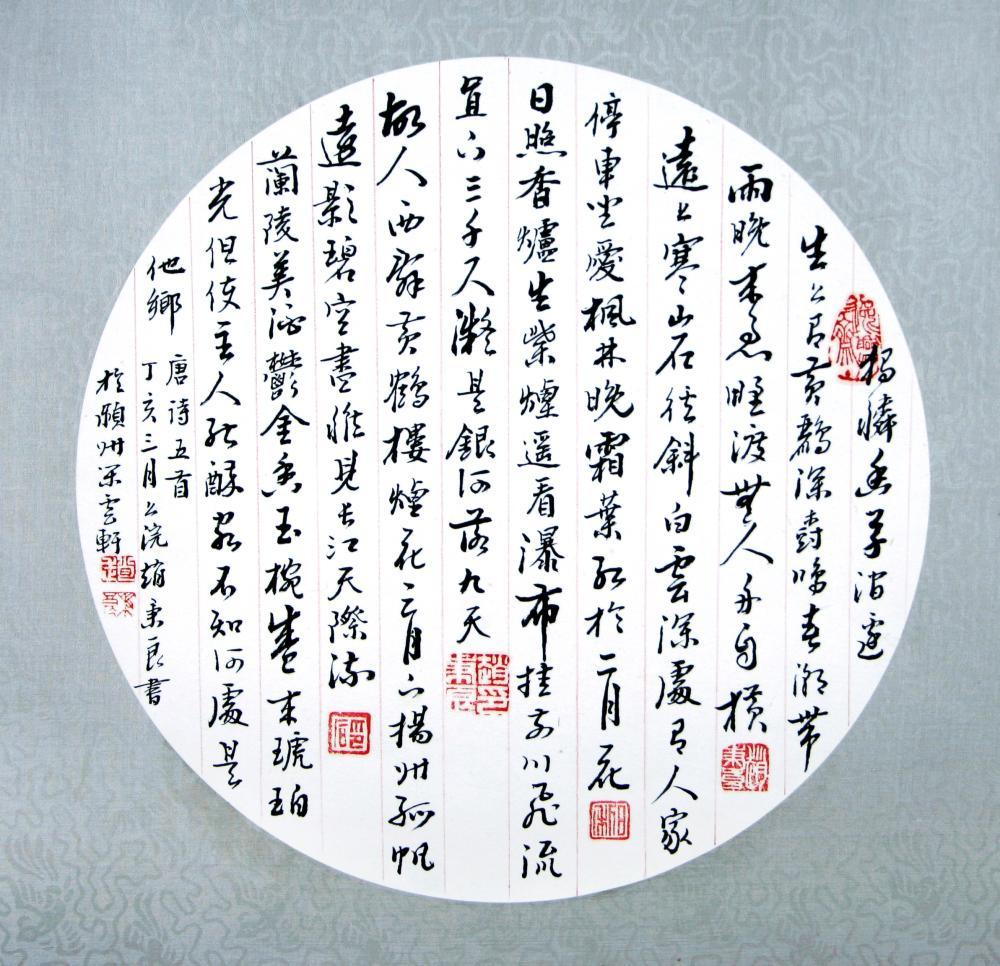 獨憐幽草澗邊
生上有黄鸝深樹鳴春潮帶
雨晚来急野渡無人舟自横
遠上寒山石徑斜白雲深處有人家
停車坐愛楓林晚霜葉紅於二月花
日照香爐生紫煙遥看瀑布挂前川飛流
直下三千尺凝是銀河落九天
故人西辭黄鶴樓煙花三月下揚州孤帆
遠影碧空盡惟見長江天際流
蘭陵美酒鬱金香玉椀盛来琥珀
光但使主人能醉客不知何處是
他鄉
唐诗五首
丁亥三月上浣趙秉良書
於潁州雲軒